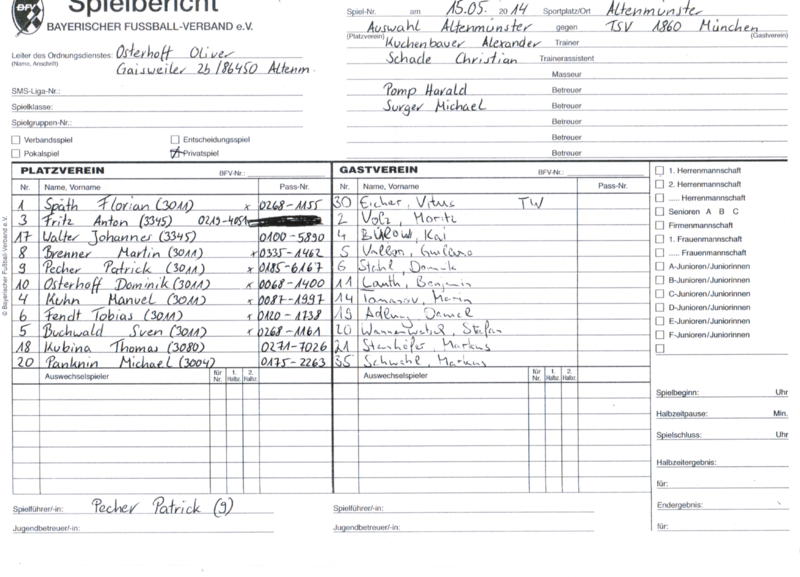 Spielbericht
BFV
BAYERISCHER FUSSBALL-VERBAND e.V.
Leiter des Ordnungsdienstes: Osterhoff Oliver
(Name, Anschrift) Gaisweiler 2b/86450 Altenm.
SMS-Liga-Nr.:
Spielklasse:
Spielgruppen-Nr.:
Verbandsspiel
Entscheidungsspiel
Pokalspiel
Privatspiel
Spiel-Nr. am 15.05. 2014 Sportplatz/Ort Altenmünster
Auswahl Altenmünster gegen TSV 1860 München
(Platzverein) (Gastverein)
Kuchenbauer Alexander Trainer
Schade Christian Trainerassistent
Masseur
Pomp Harald Betreuer
Surger Michael Betreuer
Betreuer
Betreuer
Betreuer
Betreuer
PLATZVEREIN BFV-Nr.:
Nr. Name, Vorname Pass-Nr.
1 Späth Florian (3011) x 0268-1155
3 Fritz Anton (3345) 0219-4051
17 Walter Johannes (3345) 0100-5890
8 Brenner Martin (3011) x 0335-1462
9 Pecher Patrick (3011) x 0185-6167
10 Osterhoff Dominik (3011) x 0068-1400
4 Kuhn Manuel (3011) x 0087-1997
6 Fendt Tobias (3011) x 0120-1738
5 Buchwald Sven (3011) x 0268-1161
18 Kubina Thomas (3080) 0271-7026
20 Panknin Michael (3004) 0175-2263
Auswechselspieler für Nr. 1. Halbz. 2. Halbz.
GASTVEREIN BFV-Nr.:
Nr. Name, Vorname Pass-Nr.
30 Eicher, Vitus TW
2 Volz, Moritz
4 Bülow, Kai
5 Vallori, Guillermo
6 Stahl, Dominik
11 Lauth, Benjamin
14 Tomasov, Marin
19 Adlung, Daniel
20 Wannenwetsch, Stefan
21 Steinhöfer, Markus
35 Schwabl, Markus
Auswechselspieler für Nr. 1. Halbz. 2. Halbz.
1. Herrenmannschaft
2. Herrenmannschaft
..... Herrenmannschaft
Senioren A B C
Firmenmannschaft
1. Frauenmannschaft
..... Frauenmannschaft
A-Junioren/Juniorinnen
B-Junioren/Juniorinnen
C-Junioren/Juniorinnen
D-Junioren/Juniorinnen
E-Junioren/Juniorinnen
F-Junioren/Juniorinnen
Spielbeginn: Uhr
Halbzeitpause: Min.
Spielschluss: Uhr
Halbzeitergebnis:
für:
Endergebnis:
für:
Spielführer/-in: Pecher Patrick (9)
Jugendbetreuer/-in:
Spielführer/-in:
Jugendbetreuer/-in:
© Bayerischer Fußball-Verband e.V.